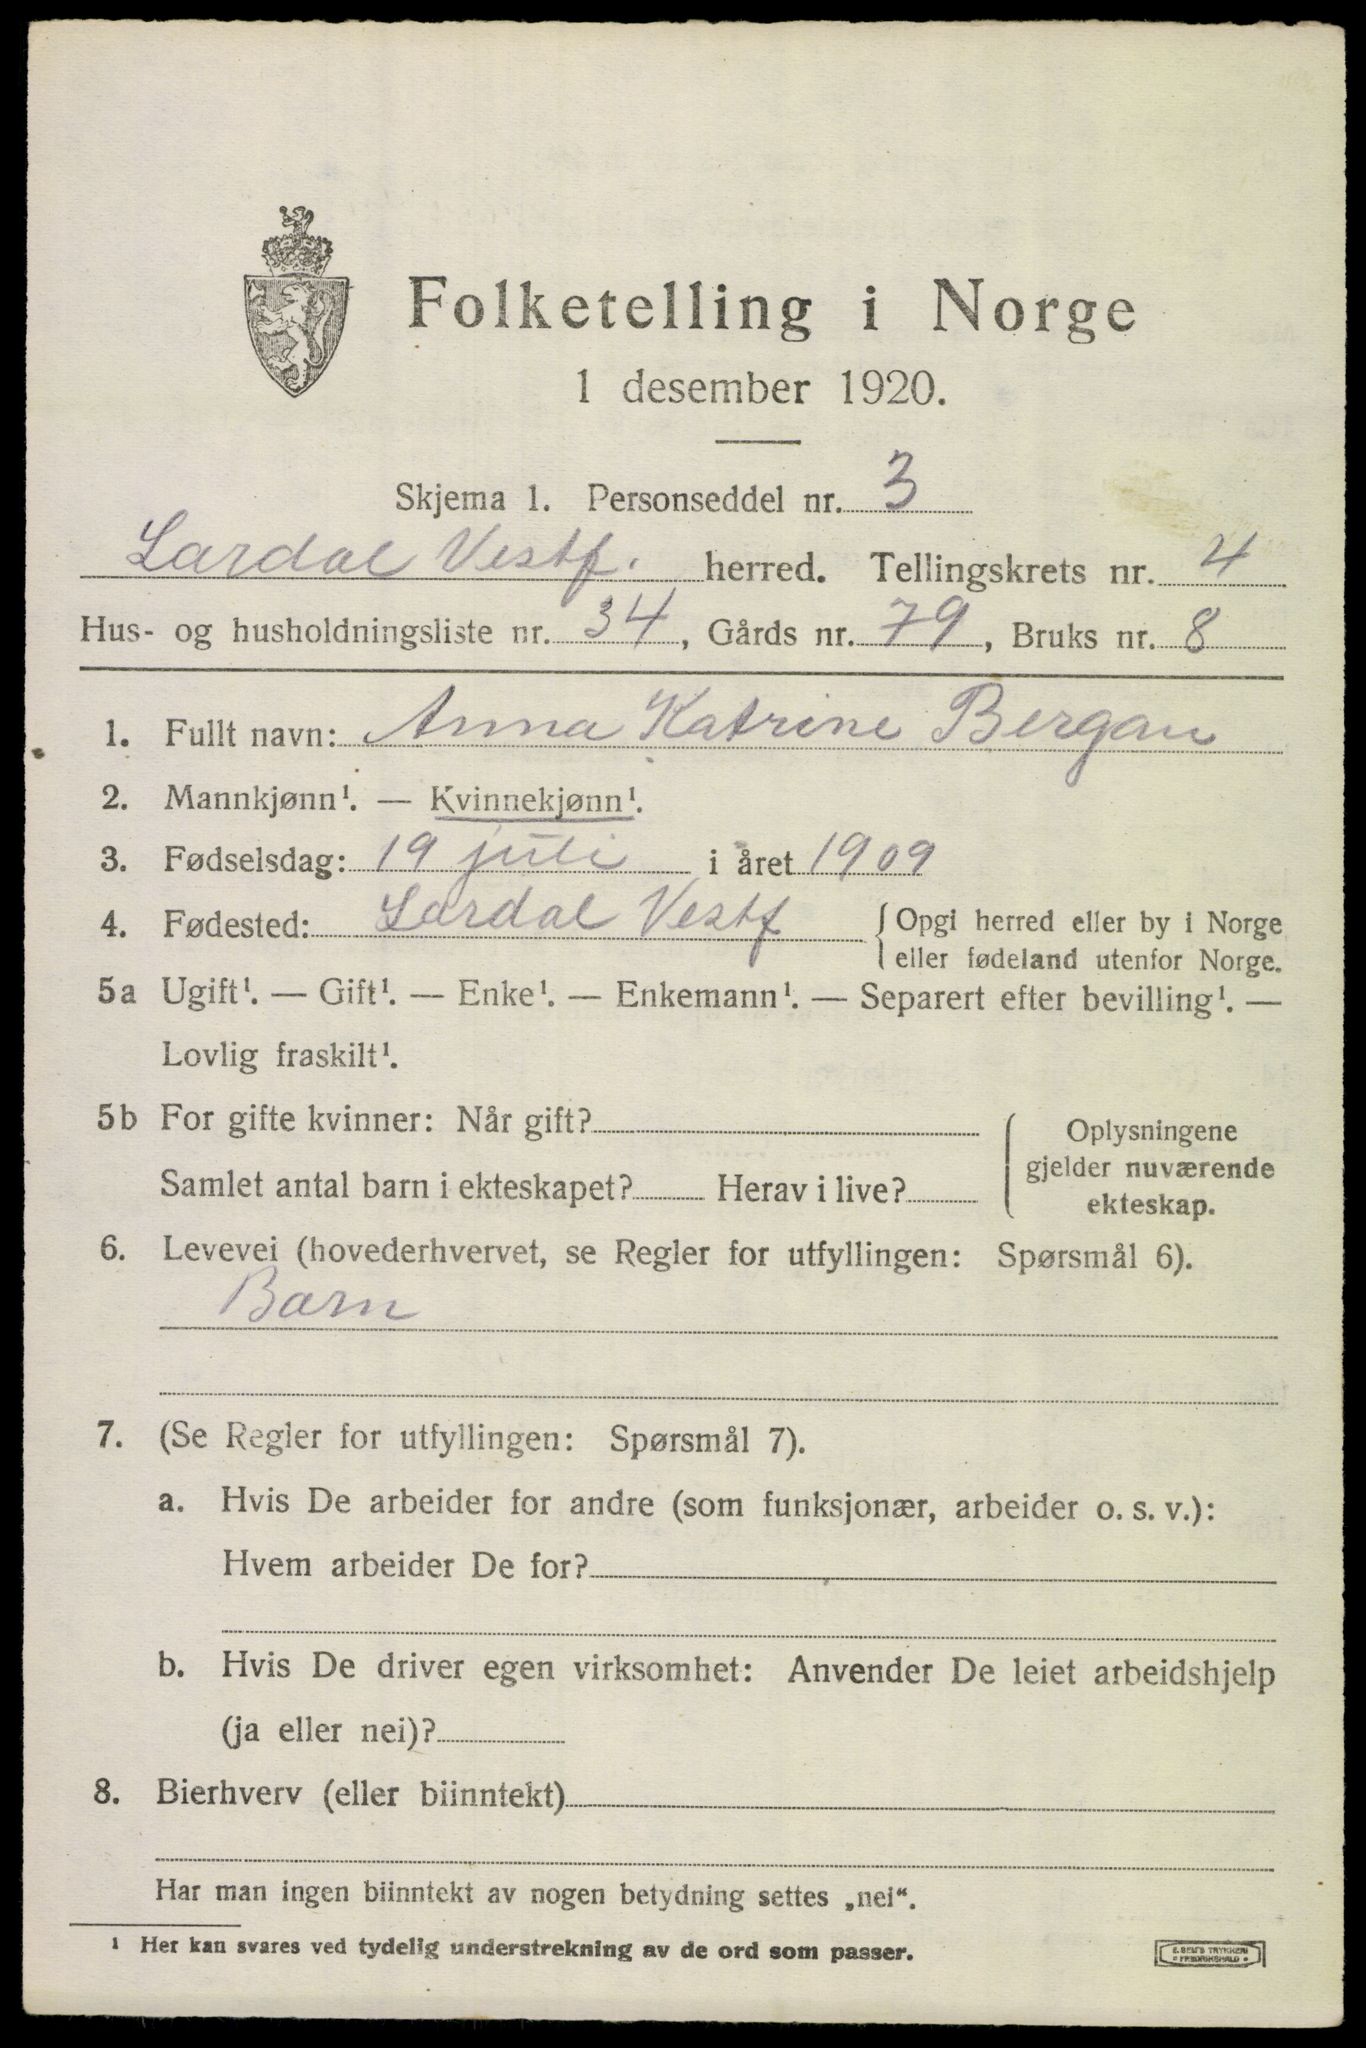 Folketelling i Norge
1 desember 1920.
Skjema 1. Personseddel nr. 3
Lardal Vestf. herred. Tellingskrets nr. 4
Hus- og husholdningsliste nr. 34, Gårds nr. 79, Bruks nr. 8
1. Fullt navn: Anna Katrine Bergan
2. Mannkjønn¹. — Kvinnekjønn¹.
3. Fødselsdag: 19 juli i året 1909
4. Fødested: Lardal Vestf { Opgi herred eller by i Norge
eller fødeland utenfor Norge.
5a Ugift¹. — Gift¹. — Enke¹. — Enkemann¹. — Separert efter bevilling¹. —
Lovlig fraskilt¹.
5b For gifte kvinner: Når gift?
Samlet antal barn i ekteskapet? Herav i live?
Oplysningene
gjelder nuværende
ekteskap.
6. Levevei (hovederhvervet, se Regler for utfyllingen: Spørsmål 6).
Barn
7. (Se Regler for utfyllingen: Spørsmål 7).
a. Hvis De arbeider for andre (som funksjonær, arbeider o. s. v.):
Hvem arbeider De for?
b. Hvis De driver egen virksomhet: Anvender De leiet arbeidshjelp
(ja eller nei)?
8. Bierhverv (eller biinntekt)
Har man ingen biinntekt av nogen betydning settes „nei“.
¹ Her kan svares ved tydelig understrekning av de ord som passer.
E. SEM'S TRYKKERI
FREDRIKSHALD